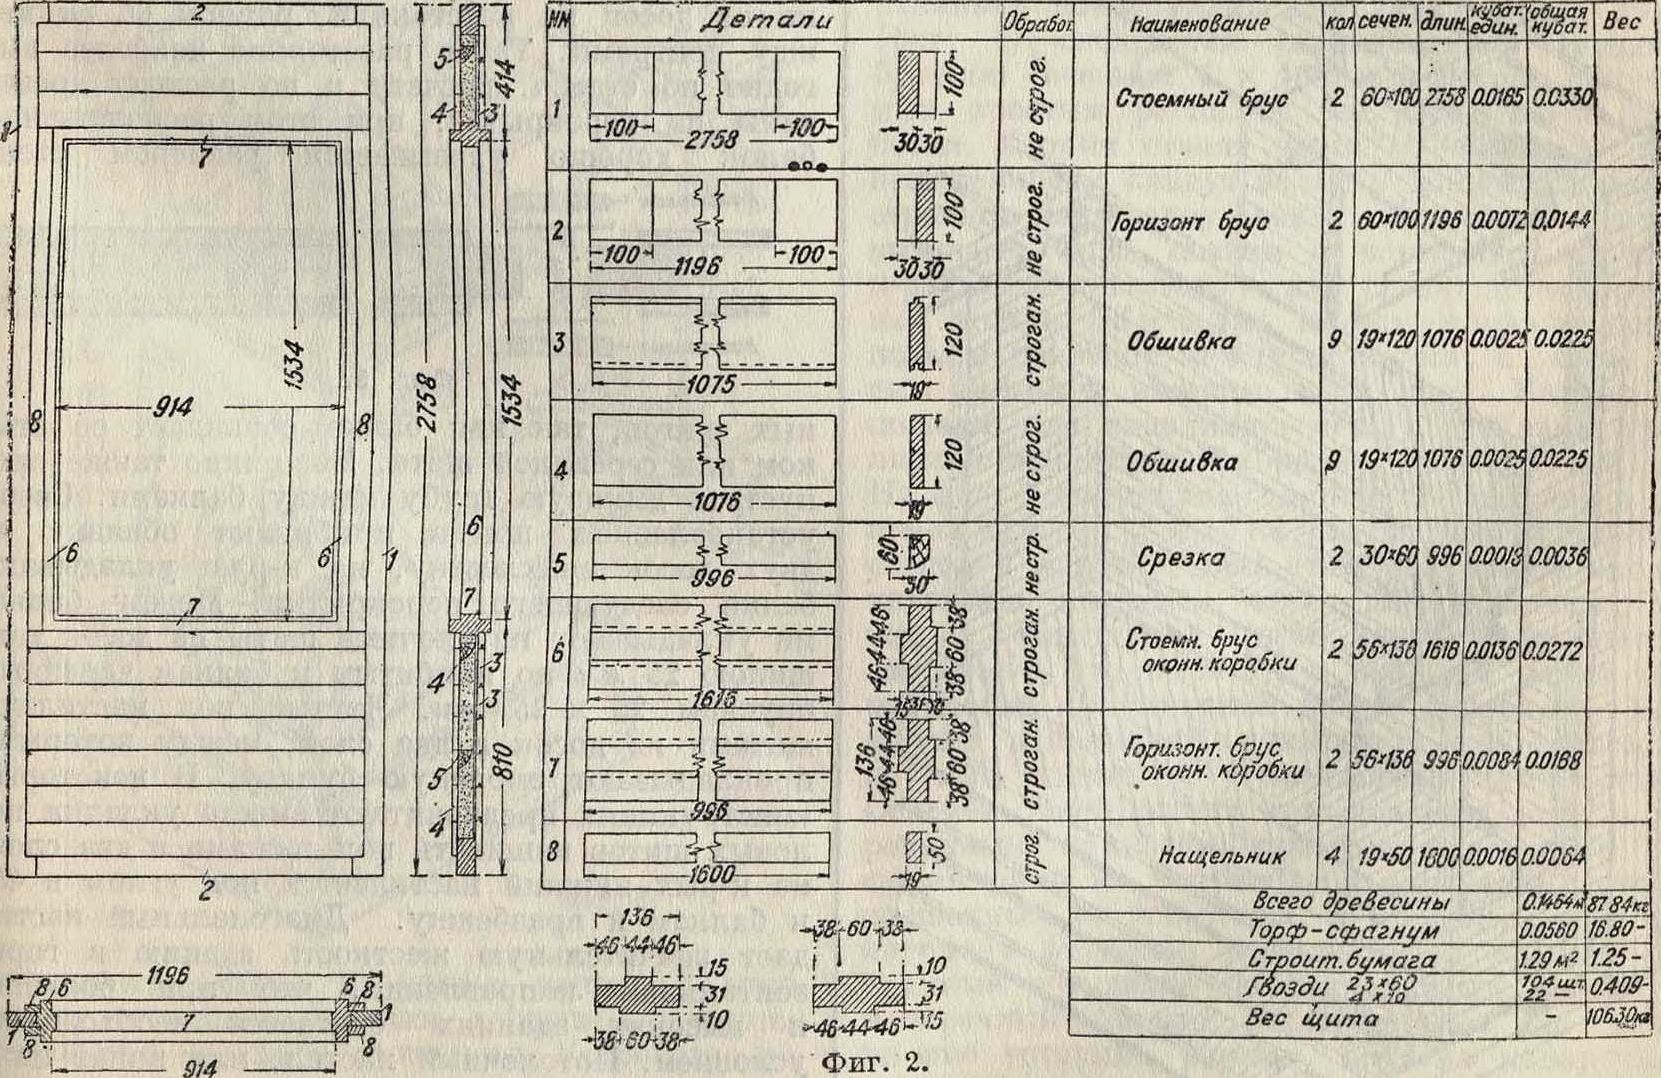 2
5
4
3
414
1
7
1534
914
8
8
2758
1534
6
6
6
1
7
7
4
3
3
5
4
810
2
1196
8 6
6 8
1
7
1
8
8
914
№№ Детали Обработ. Наименование кол сечен. длин. кубат. един. общая кубат. Вес
1 100 100 2758 100 30 30 не строг. Стоемный брус 2 60×100 2758 0.0165 0.0330
2 100 100 1196 100 30 30 не строг. Горизонт брус 2 60×100 1196 0.0072 0,0144
3 1075 120 19 строган. Обшивка 9 19×120 1076 0.0025 0.0225
4 1076 120 19 не строг. Обшивка 9 19×120 1076 0.0025 0.0225
5 996 60 30 нестр. Срезка 2 30×60 996 0.0018 0.0036
6 1616 46 44 46 38 60 38 строган. Стоемн. брус
оконн. коробки 2 56×138 1616 0.0136 0.0272
7 996 136 46 44 46 38 60 38 строган. Горизонт. брус
оконн. коробки 2 56×138 996 0.0084 0.0168
8 1600 50 19 строг. Нащельник 4 19×50 1600 0.0016 0.0064
Всего древесины 0.1464 м³ 87.84 кг
Торф-сфагнум 0.0560 16.80 -
Строит. бумага 1.29 м² 1.25 -
Гвозди 104 шт. 0.409 -
22 —
Вес щита - 106.30 кг
136
46 44 46
15
31
10
38 60 38
38 60 38
10
31
15
46 44 46
Фиг. 2.